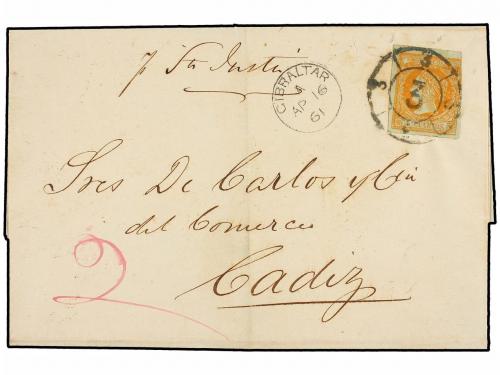 GIBRALTAR
A
AP 16
61
3
Sres De Carlos y Cia
del Comercio
2
Cadiz